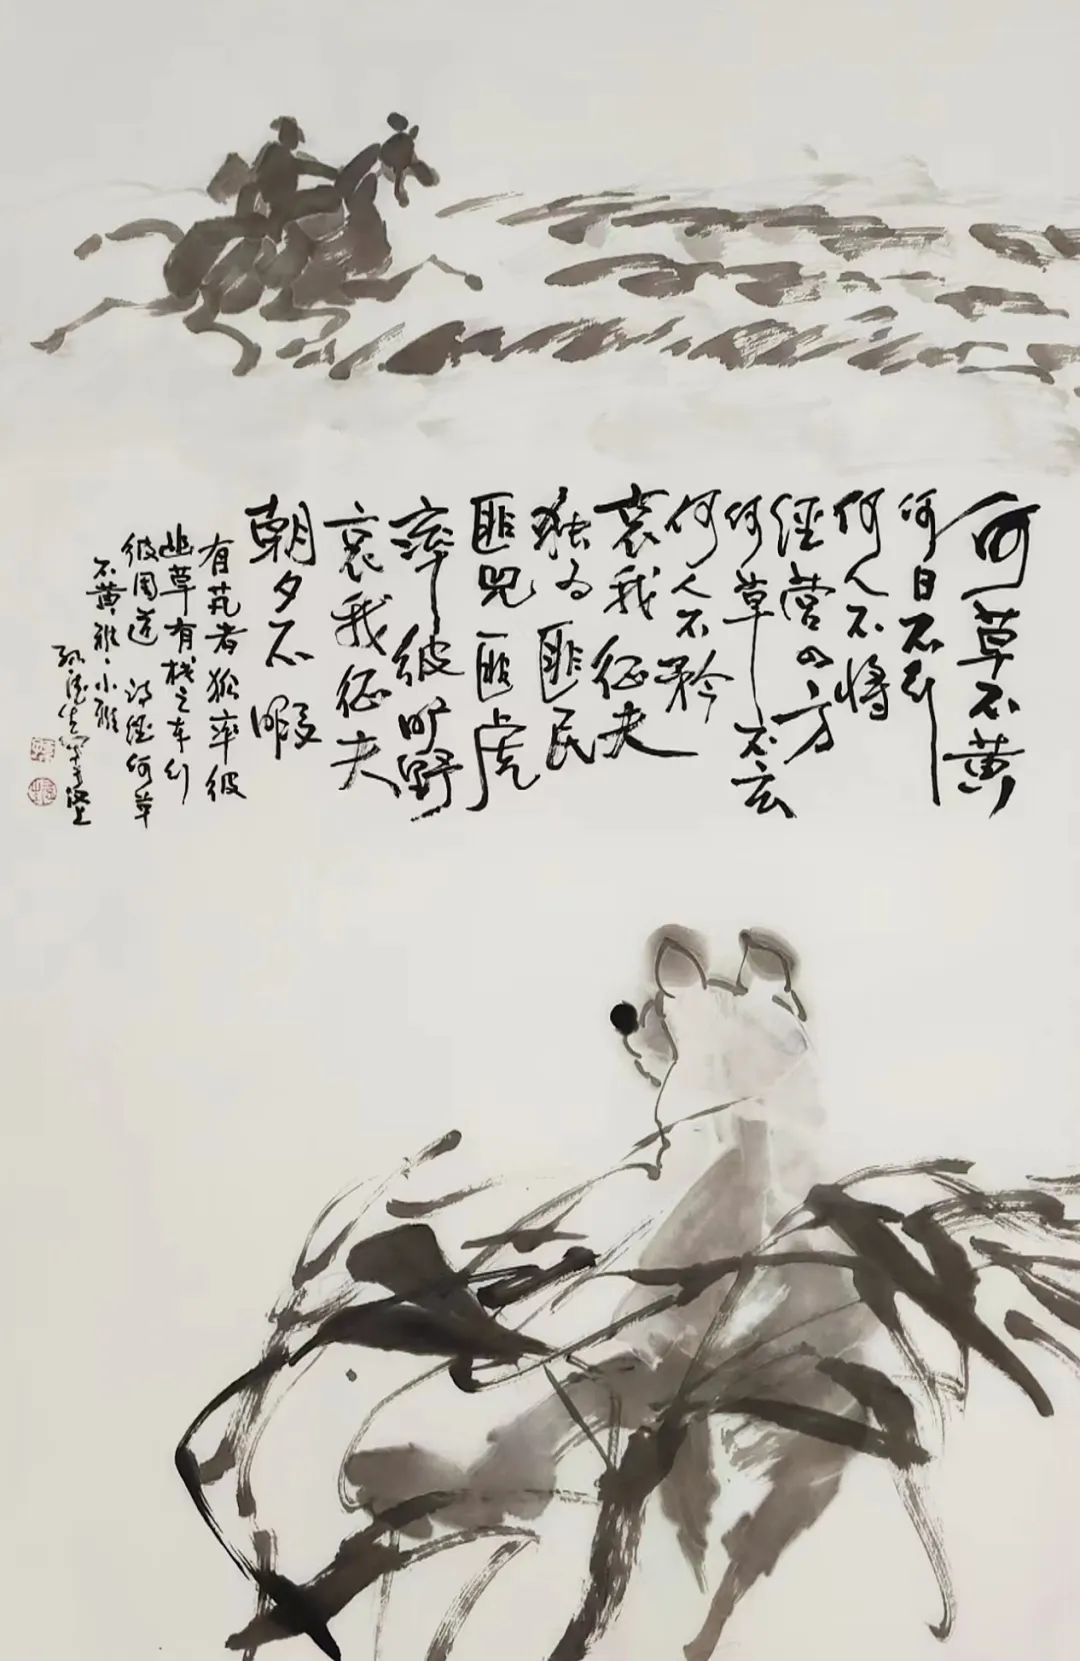 何草不黄
何日不行
何人不将
經營四方
何草不玄
何人不矜
哀我征夫
独为匪民
匪兕匪虎
率彼旷野
哀我征夫
朝夕不暇
有芃者狐率彼
幽草有栈之车行
彼周道 诗经何草
不黄 小雅